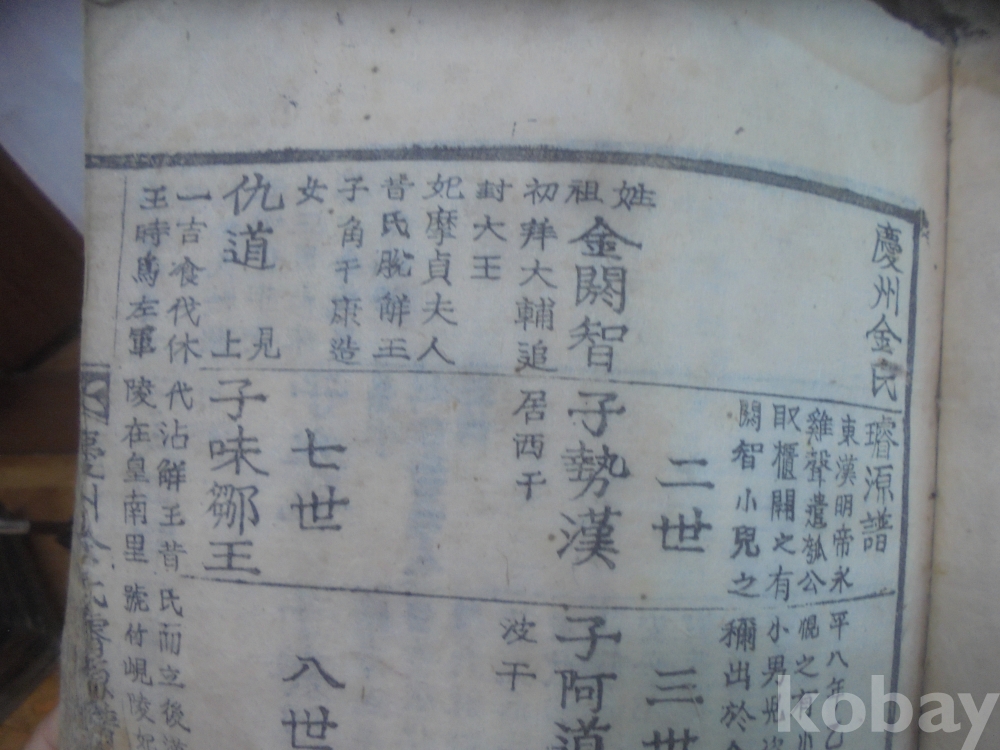 慶州金氏璿源譜
東漢明帝永平八年乙
雞聲遣瓠公視之有小
取櫃開之有小男兒
閼智小兒之稱出於金
姓祖
金閼智
初拜大輔追
封大王
妃摩貞夫人
昔氏脫解王
子角干康造
女
仇道 見上
一吉飡伐休
王時爲左軍
二世
子勢漢
居西干
七世
子味鄒王
代沾解王昔氏而立後
陵在皇南里號竹峴陵妃
三世
子阿道
波干
八世
慶州金氏璿源譜
kobay